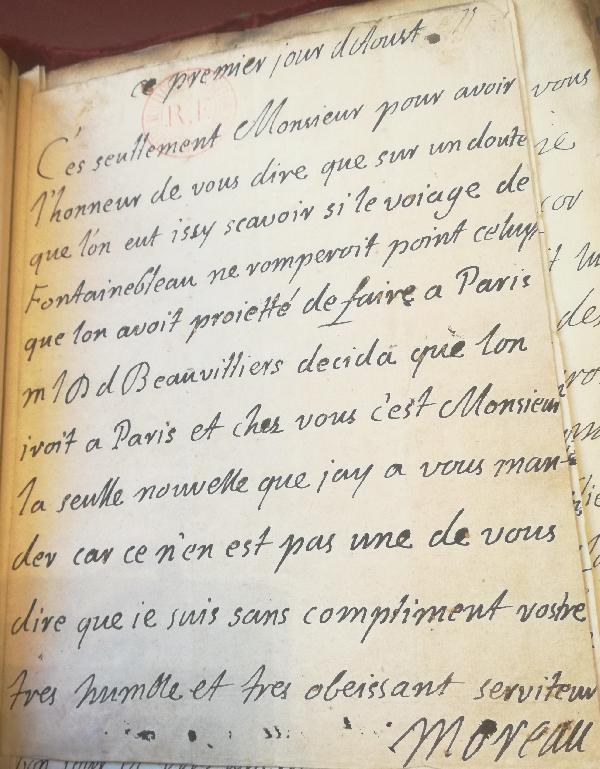 ce premier jour d'Aoust.
R.F.
C'es seullement Monsieur pour avoir
l'honneur de vous dire que sur un doute
que l'on eut issy scavoir si le voiage de
Fontainebleau ne romperoit point celuy
que lon avoit proietté de faire a Paris
m l D d Beauvilliers decida que lon
iroit a Paris et chez vous c'est Monsieur
la seulle nouvelle que jay a vous man-
der car ce n'en est pas une de vous
dire que ie suis sans compliment vostre
tres humble et tres obeissant serviteur
Moreau
vous